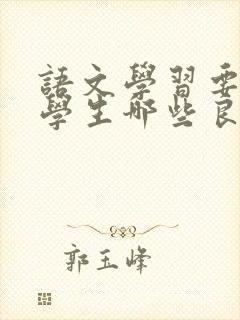 語文學習要
學生哪些良
郭玉峰